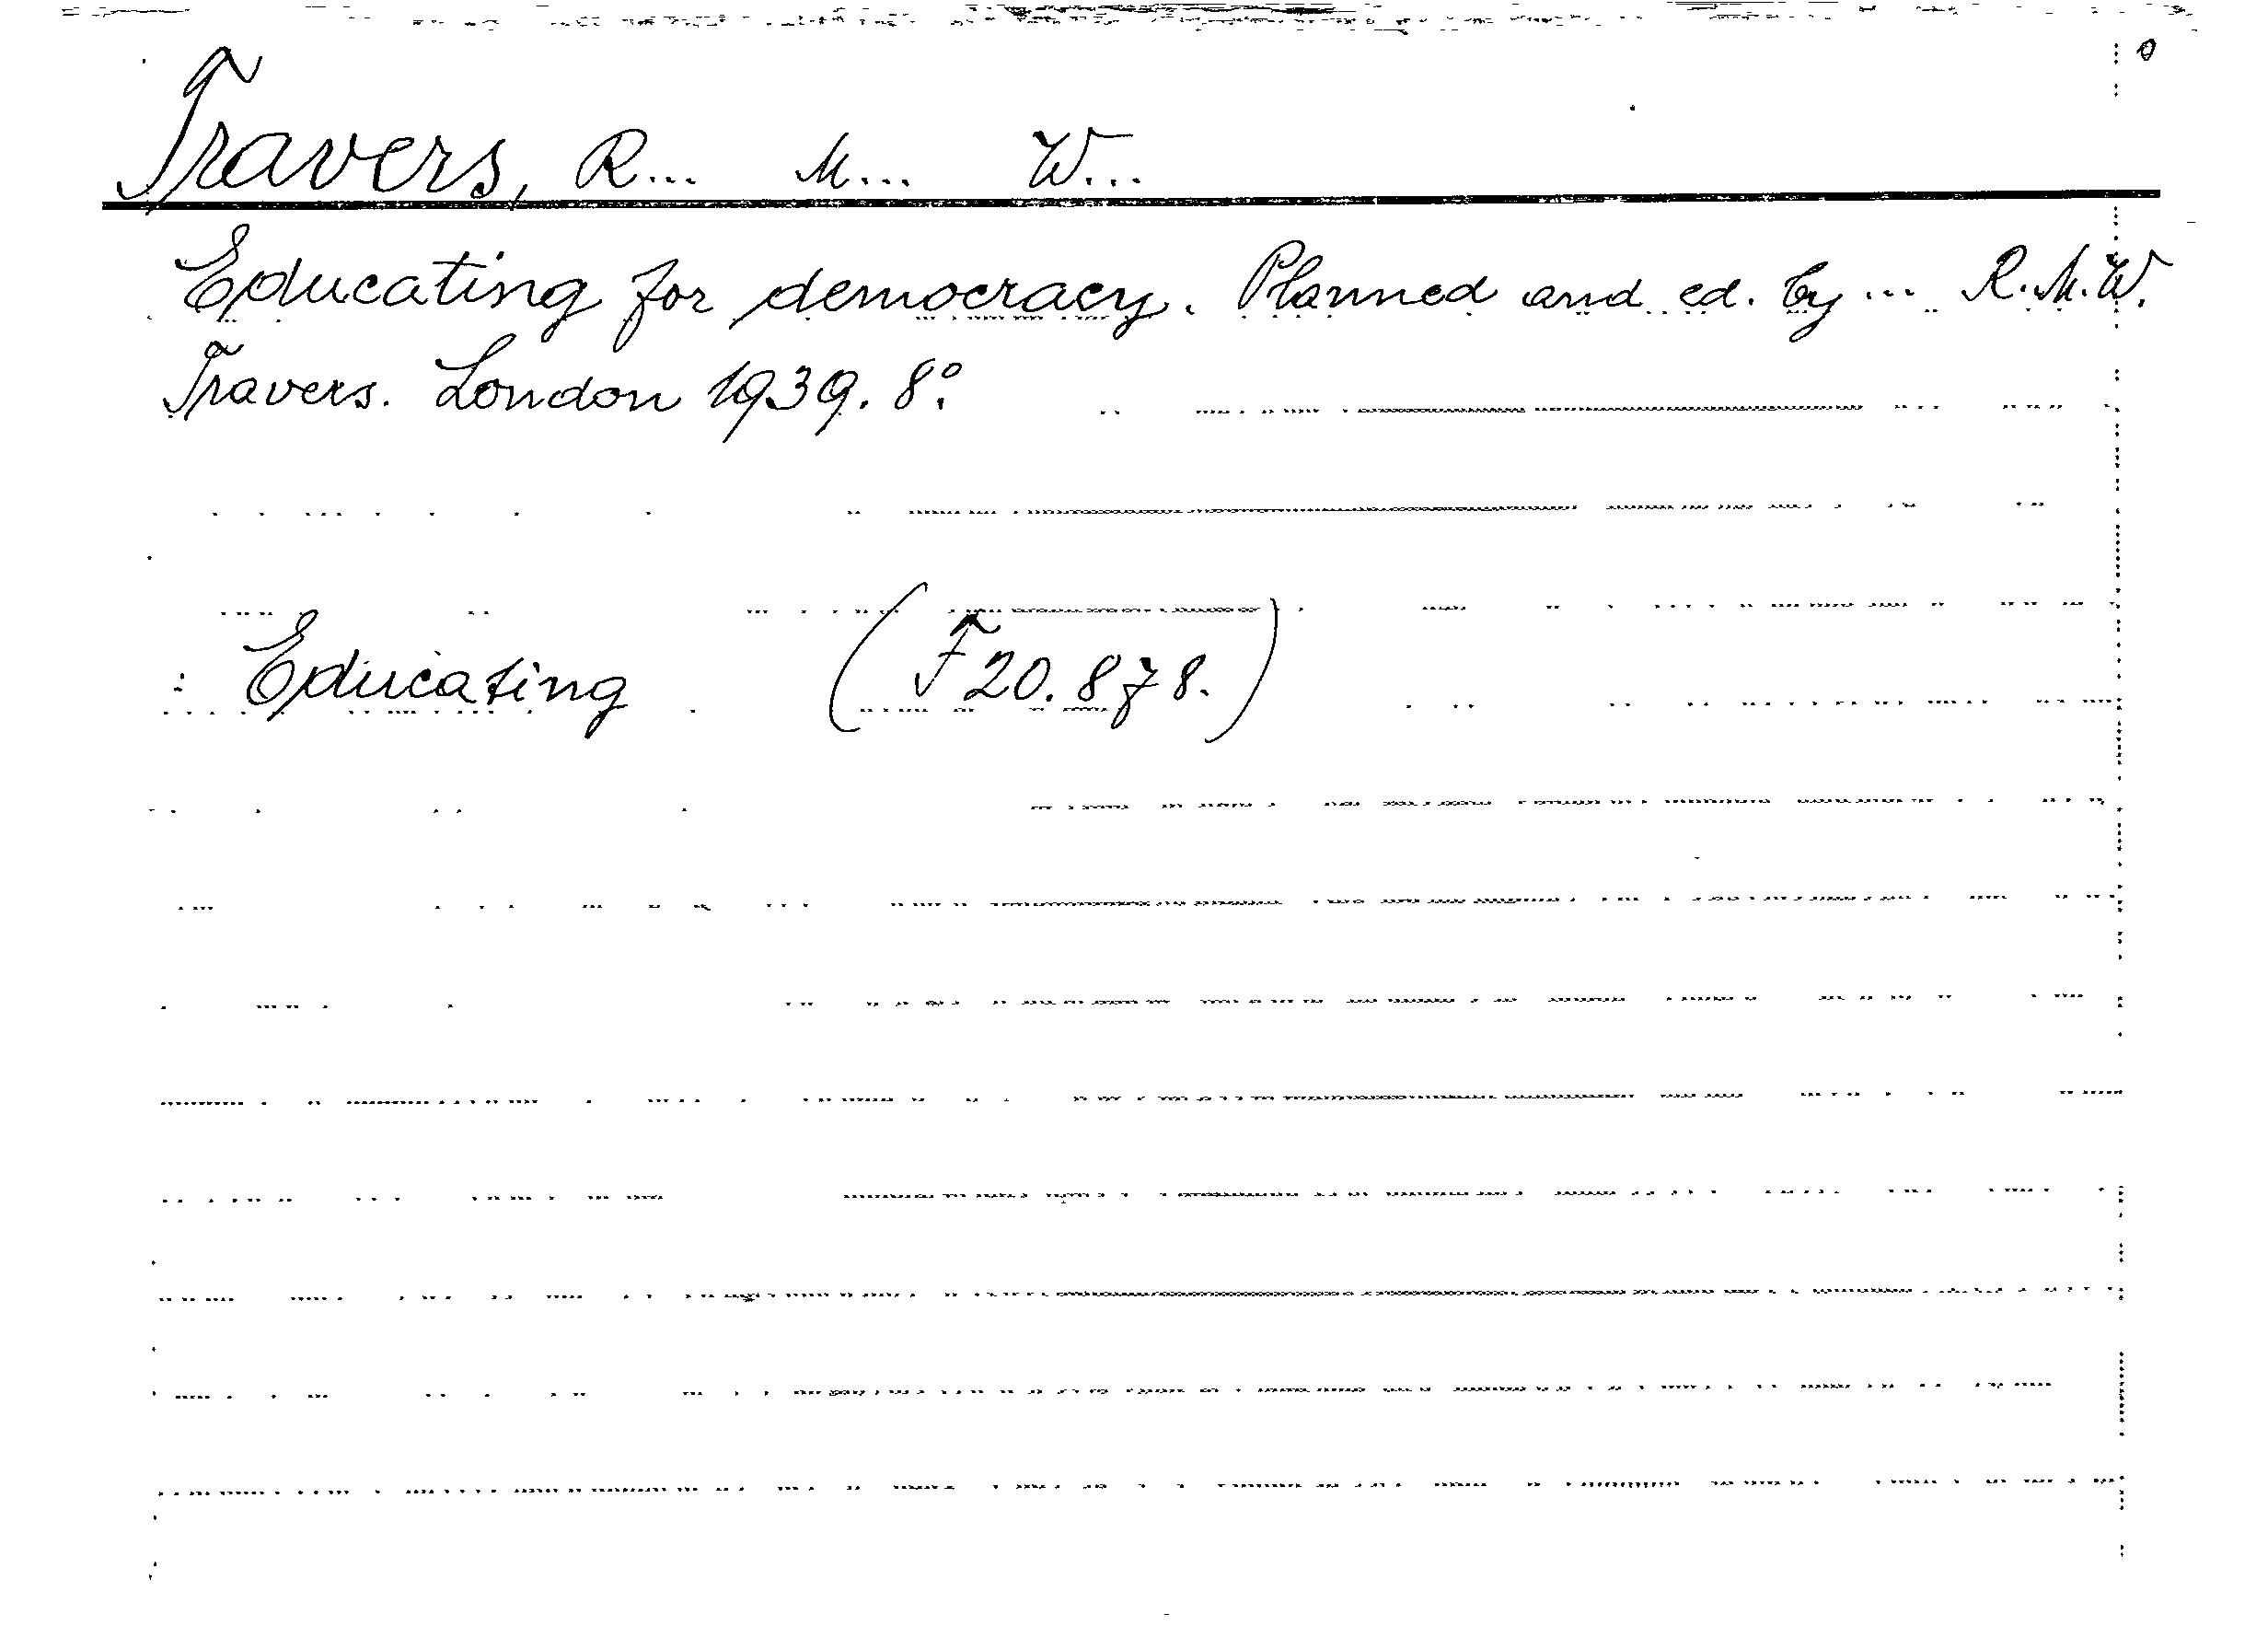 Travers, R... M... W...
Educating for democracy. Planned and ed. by ... R.M.W.
Travers. London 1939. 8°.
Educating (F 20.878.)